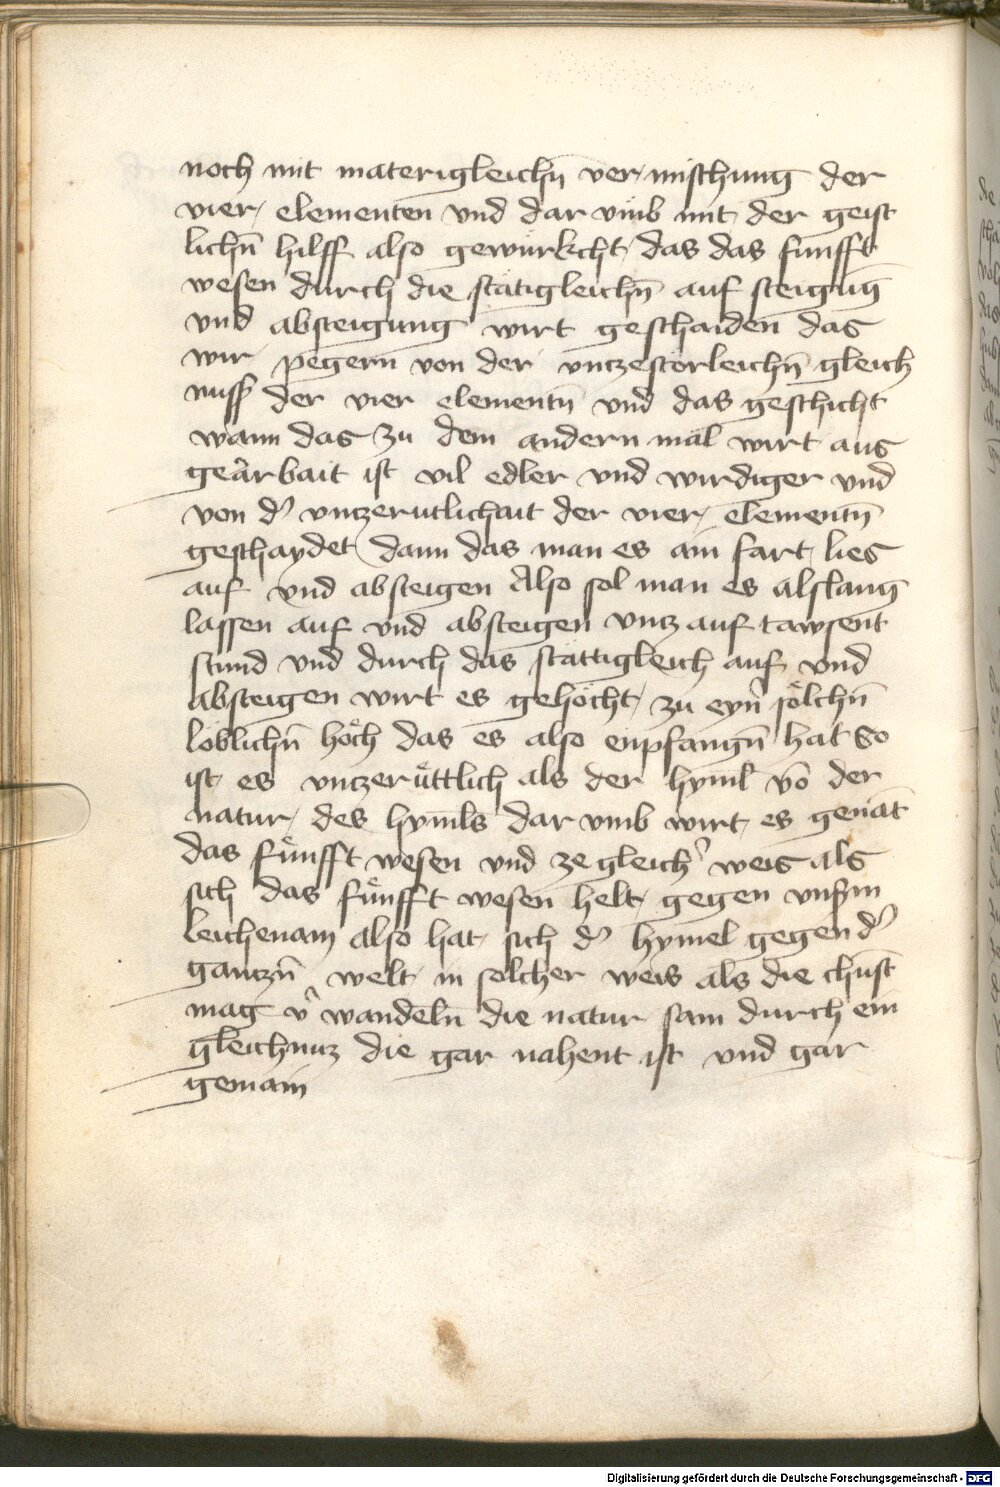 noch mit materigleichn̄ ver mischung der
vier elementen vnd dar vmb mit der geist
lichn̄ hilff also gewürkcht das das funfft
wesen durch die stätigleichn̄ auf steigūg
vnd absteigung wirt geschaiden das
wir pegern von der vnczestorleichn̄ gleich
nuss der vier elementn̄ vnd das geschicht
wann das zu dem andern mal wirt aus
gearbait ist vil edler vnd wirdiger vnd
von d' vnczerutlichait der vier elementn̄
geschaydet dann das man es ain fart lies
auf vnd absteigen Also sol man es alslang
lassen auf vnd absteigen vncz auf tawsent
stund vnd durch das stättigleich auf vnd
absteigen wirt es gehöcht zu eyn̄ sölchn̄
löblichn̄ höch das es also enpfangn̄ hat So
ist es vnczerüttlich als der hyml vō der
natur des hymls dar vmb wirt es genāt
das fünfft wesen vnd ze gleich' weis als
sich das fünfft wesen helt gegen vnserm
leichenam also hat sich d' hymel gegen d'
ganczn̄ welt in solcher weis als die chūst
mag v' wandeln die natur sam durch ein
gleichnuz die gar nahent ist vnd gar
gemain
Digitalisierung gefördert durch die Deutsche Forschungsgemeinschaft - DFG